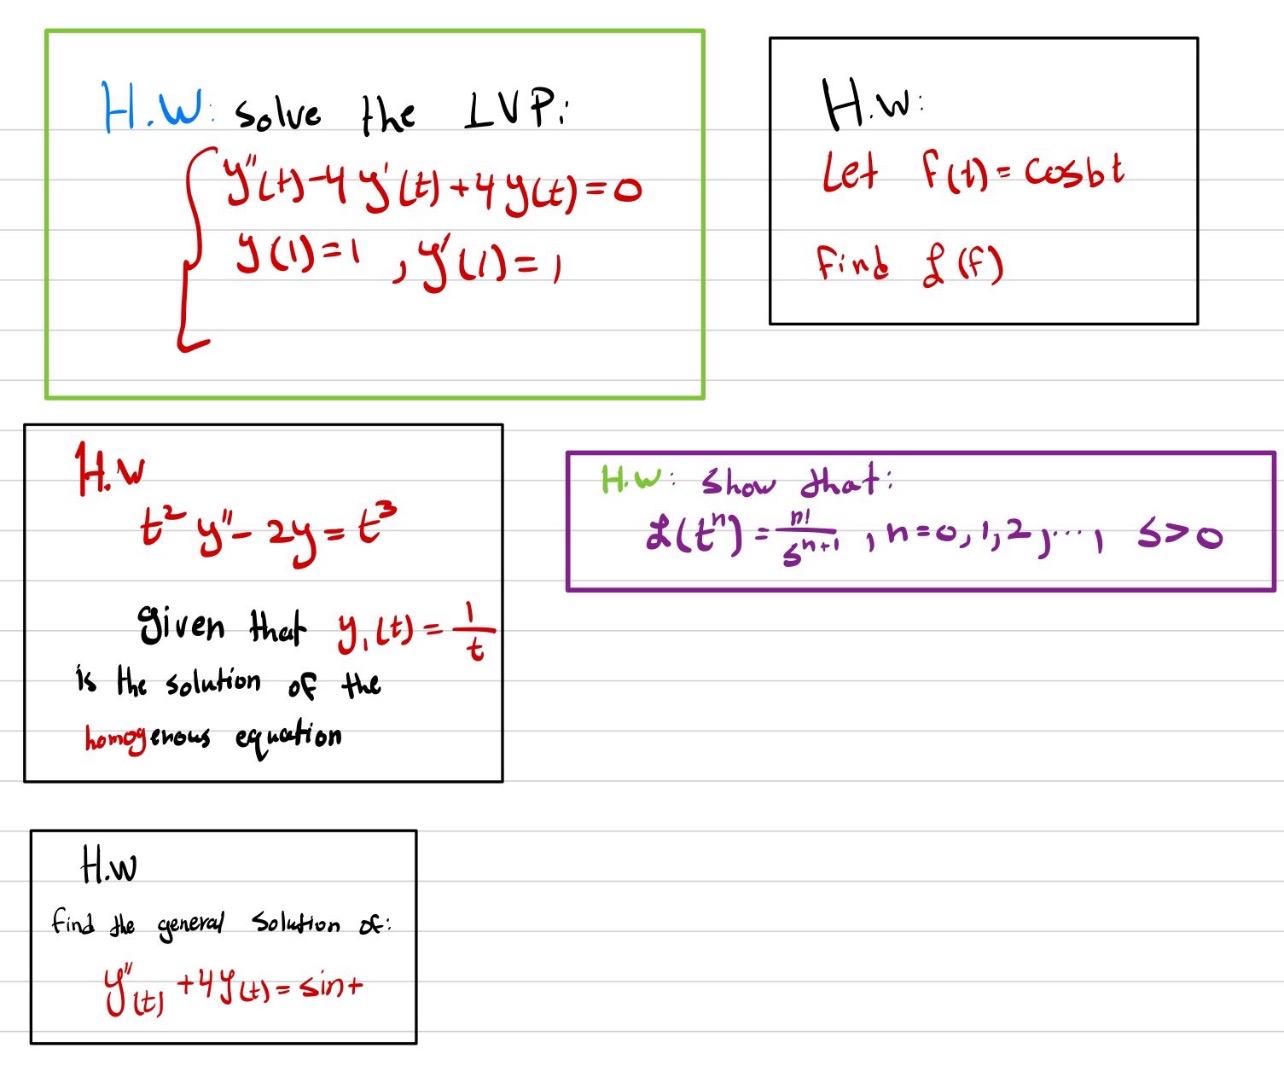 H.W: solve the IVP:
y''(t)-4y'(t)+4y(t)=0
y(1)=1 , y'(1)=1
H.W:
Let f(t)=cosbt
Find ℒ(f)
H.W
t² y''- 2y = t³
given that y₁(t) = 1/t
is the solution of the
homogenous equation
H.W: Show that:
ℒ(tⁿ) = n!/sⁿ⁺¹ , n=0,1,2,…, s>0
H.W
find the general solution of:
y''(t) +4y(t)= sint